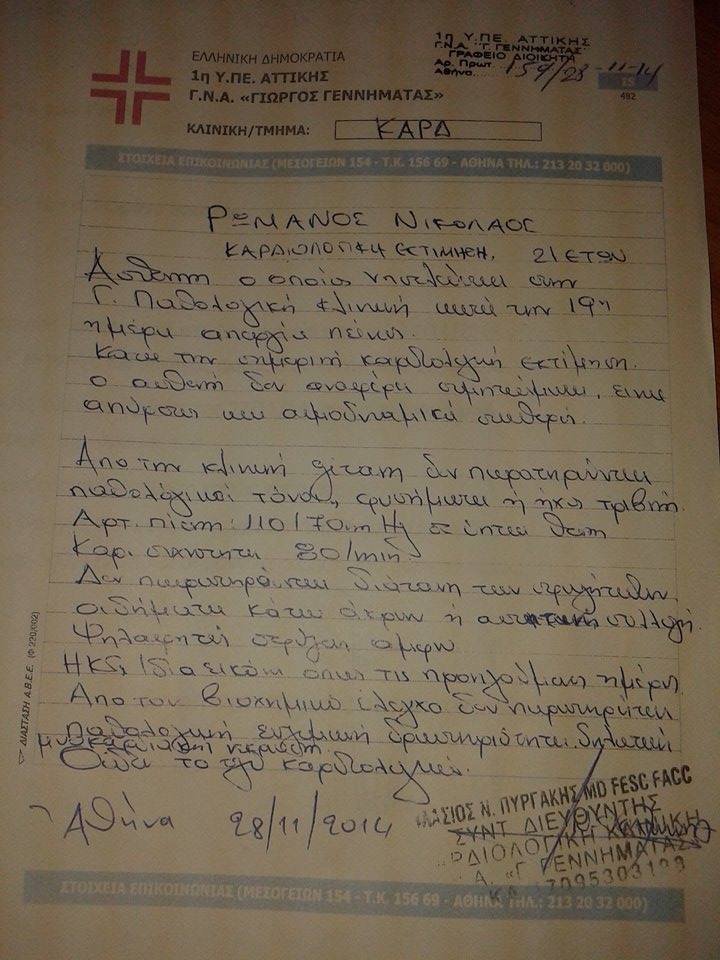 ΕΛΛΗΝΙΚΗ ΔΗΜΟΚΡΑΤΙΑ
1η Υ.ΠΕ. ΑΤΤΙΚΗΣ
Γ.Ν.Α. «ΓΙΩΡΓΟΣ ΓΕΝΝΗΜΑΤΑΣ»
1η Υ.ΠΕ. ΑΤΤΙΚΗΣ
Γ.Ν.Α. "Γ. ΓΕΝΝΗΜΑΤΑΣ"
ΓΡΑΦΕΙΟ ΔΙΟΙΚΗΤΑ
Αρ. Πρωτ.
Αθήνα 28-11-14
482
ΚΛΙΝΙΚΗ/ΤΜΗΜΑ: ΚΑΡΔ
ΣΤΟΙΧΕΙΑ ΕΠΙΚΟΙΝΩΝΙΑΣ (ΜΕΣΟΓΕΙΩΝ 154 - Τ.Κ. 156 69 - ΑΘΗΝΑ ΤΗΛ.: 213 20 32 000)
ΡΩΜΑΝΟΣ ΝΙΚΟΛΑΟΣ
ΚΑΡΔΙΟΛΟΓΙΚΗ ΕΚΤΙΜΗΣΗ, 21 ΕΤΩΝ
Ασθενή ο οποίος νοσηλεύεται στην
Γ. Παθολογική κλινική κατά την 19η
ημέρα απεργία πείνας.
Κατά την σημερινή καρδιολογική εκτίμηση.
ο ασθενή δεν αναφέρει συμπτώματα, είναι
απύρετος και αιμοδυναμικά σταθερή.
Απο την κλινική εξέταση δεν παρατηρούνται
παθολογικοί τόνοι, φυσήματα ή ήχοι τριβή.
Αρτ. πίεση: 110/70mmHg σε ύπτια θέση
Καρ. συχνότητα 80/min.
Δεν παρατηρούνται διάταση των σφαγίτιδων
οιδήματα κάτω άκρων ή συλλογή.
Ψηλαφητές σφύξεις άμφω
ΗΚΓ: Ίδια εικόνα όπως τις προηγούμενες ημέρες.
Απο τον βιοχημικό έλεγχο δεν παρατηρείται
παθολογική ενζυμική δραστηριότητα δηλωτική
μυοκαρδιακής νέκρωση.
το καρδιολογικές.
Αθήνα 28/11/2014
ΛΑΣΙΟΣ Ν. ΠΥΡΓΑΚΗΣ MD FESC FACC
ΣΥΝΤ. ΔΙΕΥΘΥΝΤΗΣ
ΡΔΙΟΛΟΓΙΚΗ
Α. «Γ. ΓΕΝΝΗΜΑΤΑΣ»
ΔΙΑΣΤΑΣΗ Α.Β.Ε.Ε. (Φ 220/002)
ΣΤΟΙΧΕΙΑ ΕΠΙΚΟΙΝΩΝΙΑΣ (ΜΕΣΟΓΕΙΩΝ 154 - Τ.Κ. 156 69 - ΑΘΗΝΑ ΤΗΛ.: 213 20 32 000)